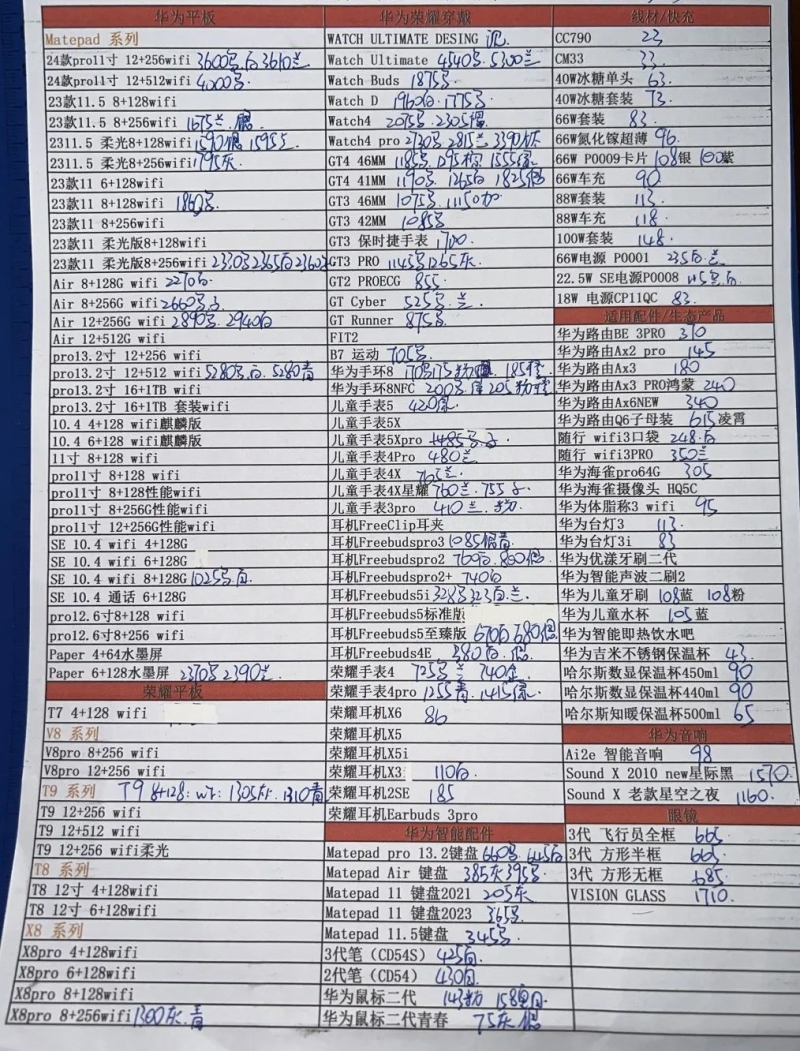 华为平板
Matepad 系列
24款pro11寸 12+256wifi 3600 3610兰
24款pro11寸 12+512wifi 4000
23款11.5 8+128wifi
23款11.5 8+256wifi 1675兰
2311.5 柔光8+128wifi 1590 1595
2311.5 柔光8+256wifi 1795灰
23款11 6+128wifi
23款11 8+128wifi 1860
23款11 8+256wifi
23款11 柔光版8+128wifi
23款11 柔光版8+256wifi 2330 2365白 2360
Air 8+128G wifi 2270白
Air 8+256G wifi 2660
Air 12+256G wifi 2890 2940白
Air 12+512G wifi
pro13.2寸 12+256 wifi
pro13.2寸 12+512 wifi 5280 白 5280青
pro13.2寸 16+1TB wifi
pro13.2寸 16+1TB 套装wifi
10.4 4+128 wifi麒麟版
10.4 6+128 wifi麒麟版
11寸 8+128 wifi
pro11寸 8+128 wifi
pro11寸 8+128性能wifi
pro11寸 8+256G性能wifi
pro11寸 12+256G性能wifi
SE 10.4 wifi 4+128G
SE 10.4 wifi 6+128G
SE 10.4 wifi 8+128G 1025 白
SE 10.4 通话 6+128G
pro12.6寸8+128 wifi
pro12.6寸8+256 wifi
Paper 4+64水墨屏
Paper 6+128水墨屏 2370 2390兰
荣耀平板
T7 4+128 wifi
V8 系列
V8pro 8+256 wifi
V8pro 12+256 wifi
T9 系列 T9 8+128: wifi: 1305灰 1310青
T9 12+256 wifi
T9 12+512 wifi
T9 12+256 wifi柔光
T8 系列
T8 12寸 4+128wifi
T8 12寸 6+128wifi
X8 系列
X8pro 4+128wifi
X8pro 6+128wifi
X8pro 8+128wifi
X8pro 8+256wifi 1300灰.青
华为荣耀穿戴
WATCH ULTIMATE DESING
Watch Ultimate 4540 5300兰
Watch Buds 1875
Watch D 1960白 1775
Watch4 2075 2305
Watch4 pro 2730 2815兰 3390灰
GT4 46MM 1185 1295棕 1555绿
GT4 41MM 1190 1265白 1825
GT3 46MM 1075 1115
GT3 42MM 1085
GT3 保时捷手表 1700
GT3 PRO 1145 1265灰
GT2 PROECG 855
GT Cyber 525 兰
GT Runner 875
FIT2
B7 运动 705
华为手环8 170 175 185
华为手环8NFC 200 205
儿童手表5 420
儿童手表5X
儿童手表5Xpro 1485
儿童手表4Pro 480兰
儿童手表4X 765兰
儿童手表4X星耀 760兰 755
儿童手表3pro 410兰
耳机FreeClip耳夹
耳机Freebudspro3 1085 青
耳机Freebudspro2 760白 800
耳机Freebudspro2+ 740白
耳机Freebuds5i 328 323白.兰
耳机Freebuds5标准版
耳机Freebuds5至臻版 670白 680
耳机Freebuds4E 580白
荣耀手表4 725 兰 740金
荣耀手表4pro 1255青 1415绿
荣耀耳机X6 86
荣耀耳机X5
荣耀耳机X5i
荣耀耳机X3 110白
荣耀耳机2SE 185
荣耀耳机Earbuds 3pro
华为智能配件
Matepad pro 13.2键盘 660 645白
Matepad Air 键盘 385灰 395
Matepad 11 键盘2021 205灰
Matepad 11 键盘2023 365
Matepad 11.5键盘 345
3代笔 (CD54S) 425白
2代笔 (CD54) 430白
华为鼠标二代 143 158
华为鼠标二代青春 75灰
线材/快充
CC790 23
CM33 33
40W冰糖单头 63
40W冰糖套装 73
66W套装 83
66W氮化镓超薄 96
66W P0009卡片 108银 100紫
66W车充 90
88W套装 113
88W车充 118
100W套装 148
66W电源 P0001 235白.兰
22.5W SE电源P0008 45 白
18W 电源CP11QC 83
适用配件/生态产品
华为路由BE 3PRO 310
华为路由Ax2 pro 145
华为路由Ax3 180
华为路由Ax3 PRO鸿蒙 240
华为路由Ax6NEW 340
华为路由Q6子母装 615凌霄
随行 wifi3口袋 248白
随行 wifi3PRO 350兰
华为海雀pro64G 305
华为海雀摄像头 HQ5C
华为体脂称3 wifi 95
华为台灯3 113
华为台灯3i 83
华为优漾牙刷二代
华为智能声波二刷2
华为儿童牙刷 108蓝 108粉
华为儿童水杯 105蓝
华为智能即热饮水吧
华为吉米不锈钢保温杯 43
哈尔斯数显保温杯450ml 90
哈尔斯数显保温杯440ml 90
哈尔斯知暖保温杯500ml 65
华为音响
Ai2e 智能音响 98
Sound X 2010 new星际黑 1570
Sound X 老款星空之夜 1160
眼镜
3代 飞行员全框 665
3代 方形半框 665
3代 方形无框 685
VISION GLASS 1710